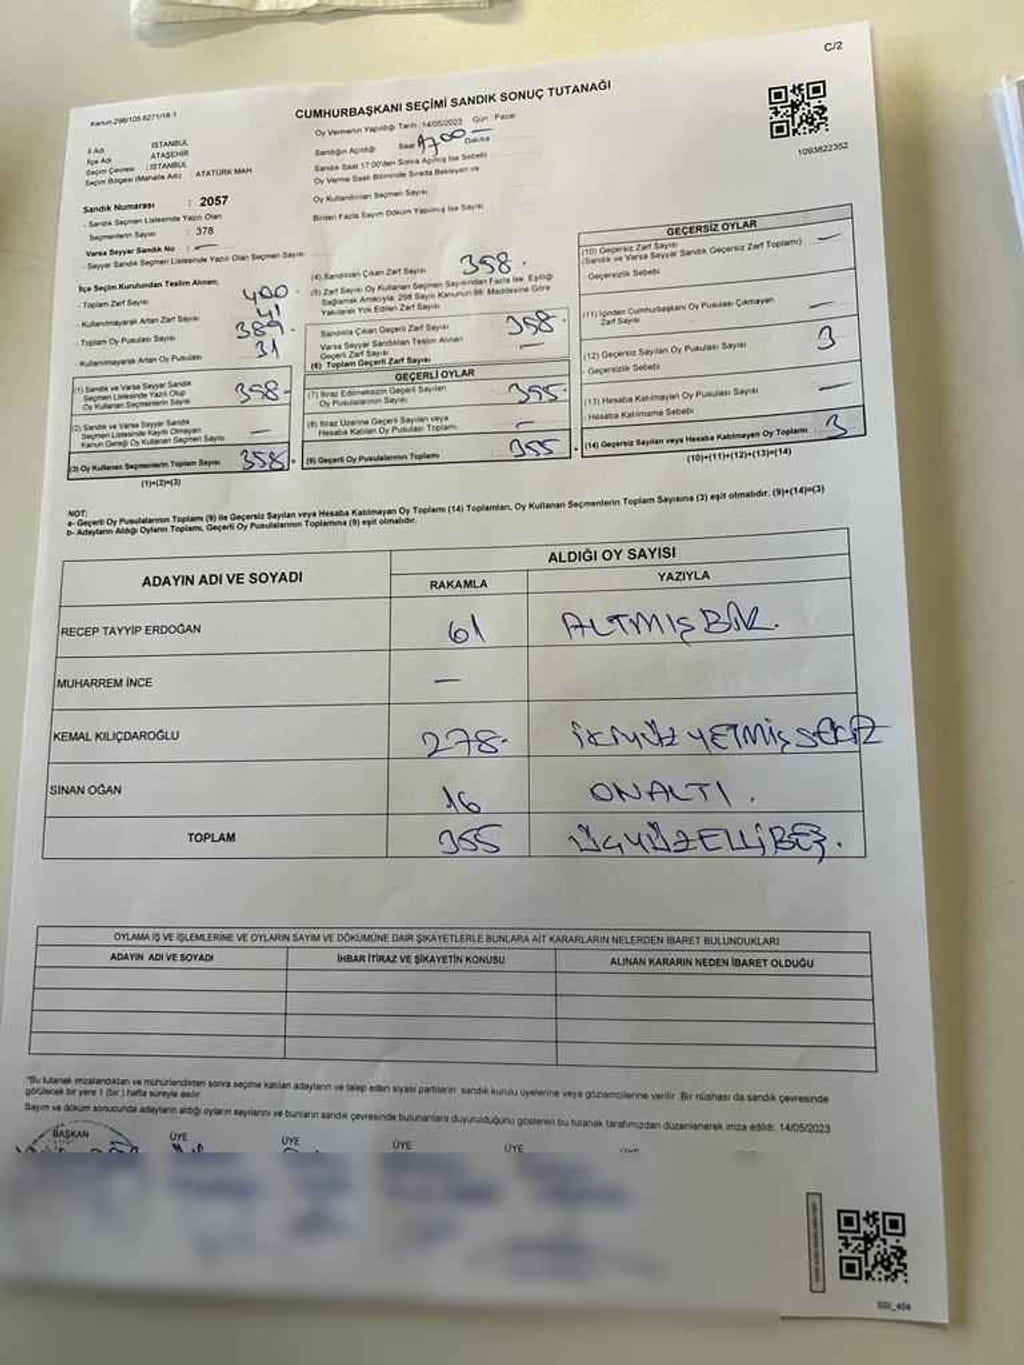 C/2
Kanun 298/105 6271/18-1
CUMHURBAŞKANI SEÇİMİ SANDIK SONUÇ TUTANAĞI
1093822352
İl Adı : İSTANBUL
İlçe Adı : ATAŞEHİR
Seçim Çevresi : İSTANBUL
Seçim Bölgesi (Mahalle Adı) : ATATÜRK MAH
Sandık Numarası : 2057
- Sandık Seçmen Listesinde Yazılı Olan
Seçmenlerin Sayısı : 378
Varsa Seyyar Sandık No : —
- Seyyar Sandık Seçmen Listesinde Yazılı Olan Seçmen Sayısı
Oy Vermenin Yapıldığı Tarih : 14/05/2023 Gün : Pazar
Sandığın Açıldığı Saat 17:00 — Dakika
Sandık Saat 17:00'den Sonra Açılmış İse Sebebi
Oy Verme Saati Bitiminde Sırada Bekleyen ve
Oy Kullandırılan Seçmen Sayısı
Birden Fazla Sayım Döküm Yapılmış İse Sayısı
İlçe Seçim Kurulundan Teslim Alınan;
- Toplam Zarf Sayısı 400
- Kullanılmayarak Artan Zarf Sayısı 41
- Toplam Oy Pusulası Sayısı 389
- Kullanılmayarak Artan Oy Pusulası 31
(1) Sandık ve Varsa Seyyar Sandık
Seçmen Listesinde Yazılı Olup
Oy Kullanan Seçmenlerin Sayısı 358
(2) Sandık ve Varsa Seyyar Sandık
Seçmen Listesinde Kaydı Olmayan
Kanun Gereği Oy Kullanan Seçmen Sayısı —
(3) Oy Kullanan Seçmenlerin Toplam Sayısı 358
(1)+(2)=(3)
(4) Sandıktan Çıkan Zarf Sayısı 358
(5) Zarf Sayısı Oy Kullanan Seçmen Sayısından Fazla İse, Eşitliği
Sağlamak Amacıyla; 298 Sayılı Kanunun 98. Maddesine Göre
Yakılarak Yok Edilen Zarf Sayısı
Sandıkta Çıkan Geçerli Zarf Sayısı 358
Varsa Seyyar Sandıktan Teslim Alınan
Geçerli Zarf Sayısı —
(6) Toplam Geçerli Zarf Sayısı
GEÇERLİ OYLAR
(7) İtiraz Edilmeksizin Geçerli Sayılan
Oy Pusulalarının Sayısı 355
(8) İtiraz Üzerine Geçerli Sayılan veya
Hesaba Katılan Oy Pusulası Toplamı —
(9) Geçerli Oy Pusulalarının Toplamı 355
GEÇERSİZ OYLAR
(10) Geçersiz Zarf Sayısı —
(Sandık ve Varsa Seyyar Sandık Geçersiz Zarf Toplamı)
Geçersizlik Sebebi
(11) İçinden Cumhurbaşkanı Oy Pusulası Çıkmayan
Zarf Sayısı —
(12) Geçersiz Sayılan Oy Pusulası Sayısı 3
Geçersizlik Sebebi
(13) Hesaba Katılmayan Oy Pusulası Sayısı —
Hesaba Katılmama Sebebi
(14) Geçersiz Sayılan veya Hesaba Katılmayan Oy Toplamı 3
(10)+(11)+(12)+(13)=(14)
NOT:
a- Geçerli Oy Pusulalarının Toplamı (9) ile Geçersiz Sayılan veya Hesaba Katılmayan Oy Toplamı (14) Toplamları, Oy Kullanan Seçmenlerin Toplam Sayısına (3) eşit olmalıdır. (9)+(14)=(3)
b- Adayların Aldığı Oyların Toplamı, Geçerli Oy Pusulalarının Toplamına (9) eşit olmalıdır.
ADAYIN ADI VE SOYADI ALDIĞI OY SAYISI
RAKAMLA YAZIYLA
RECEP TAYYİP ERDOĞAN 61 ALTMIŞ BİR.
MUHARREM İNCE —
KEMAL KILIÇDAROĞLU 278 İKİYÜZ YETMİŞ SEKİZ
SİNAN OĞAN 16 ONALTI.
TOPLAM 355 ÜÇYÜZELLİBEŞ.
OYLAMA İŞ VE İŞLEMLERİNE VE OYLARIN SAYIM VE DÖKÜMÜNE DAİR ŞİKAYETLERLE BUNLARA AİT KARARLARIN NELERDEN İBARET BULUNDUKLARI
ADAYIN ADI VE SOYADI İHBAR İTİRAZ VE ŞİKAYETİN KONUSU ALINAN KARARIN NEDEN İBARET OLDUĞU
"Bu tutanak imzalandıktan ve mühürlendikten sonra seçime katılan adayların ve talep eden siyasi partilerin sandık kurulu üyelerine veya gözlemcilerine verilir. Bir nüshası da sandık çevresinde
görülecek bir yere 1 (bir) hafta süreyle asılır
Sayım ve döküm sonucunda adayların aldığı oyların sayılarını ve bunların sandık çevresinde bulunanlara duyurulduğunu gösteren bu tutanak tarafımızdan düzenlenerek imza edildi. 14/05/2023
BAŞKAN ÜYE ÜYE ÜYE ÜYE ÜYE
SSI_404